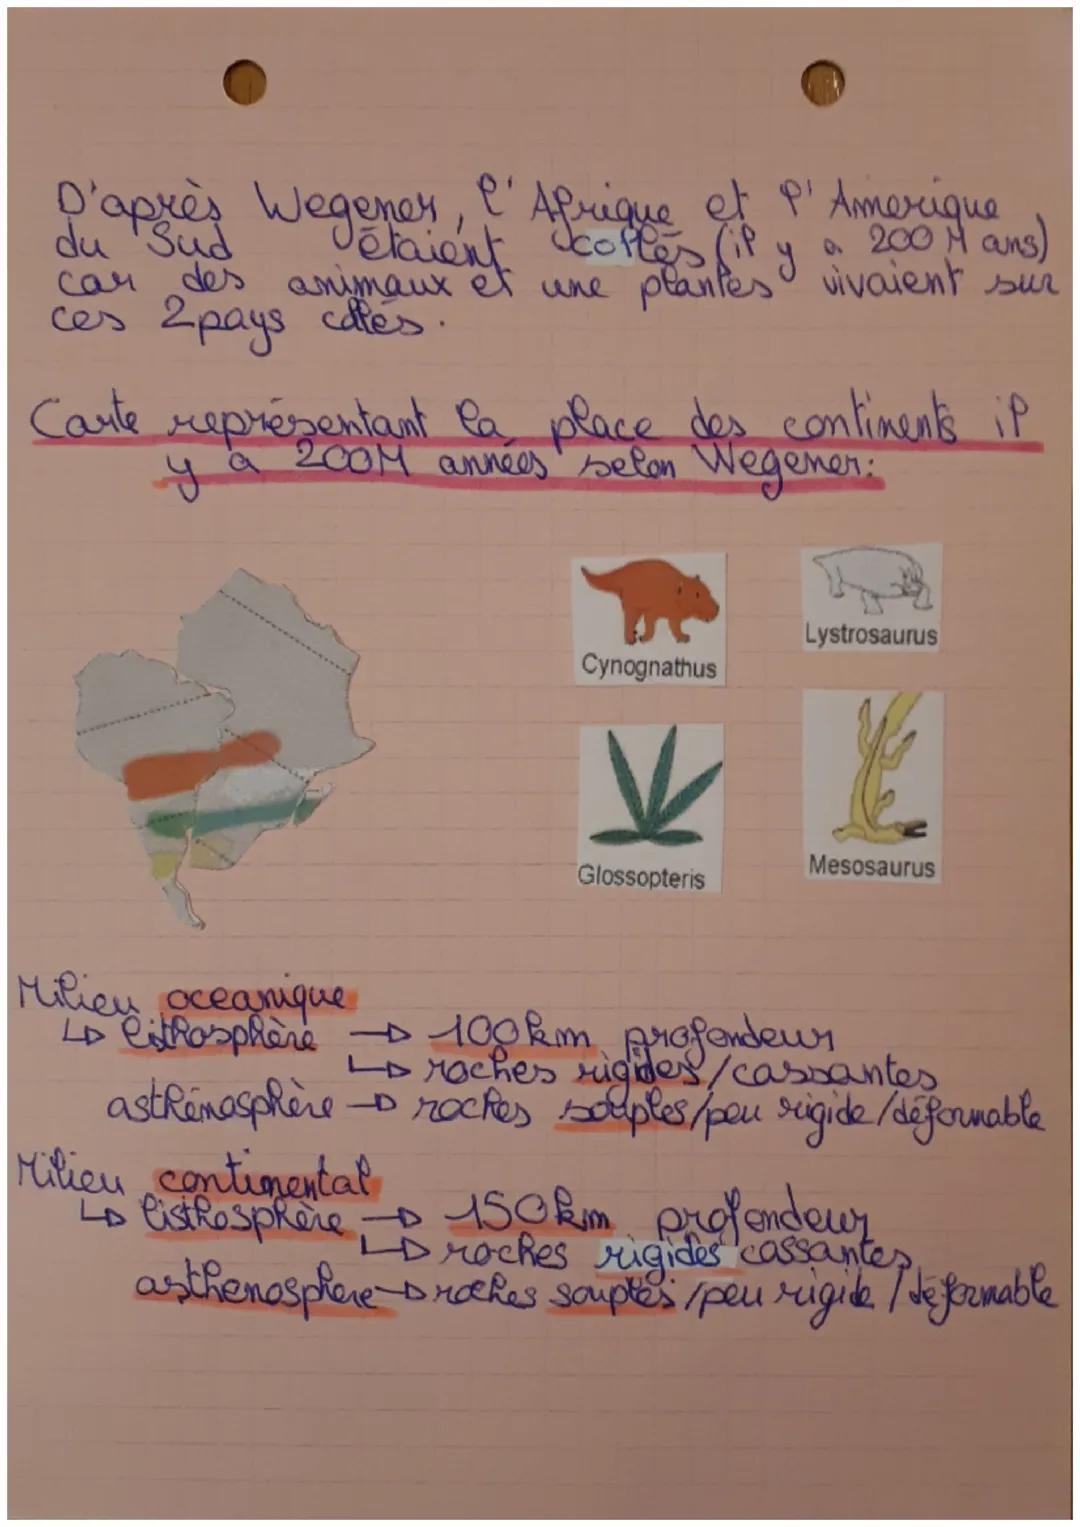 D'après Wegener, l'Afrique et l'Amerique
du Sud étaient collés (il y a 200 M ans)
car des animaux et une plantes vivaient sur
ces 2 pays collés.
Carte représentant la place des continents il
y a 200M années selon Wegener:
Cynognathus
Lystrosaurus
Glossopteris
Mesosaurus
Milieu oceanique
↳ listhosphère → 100km profondeur
↳ roches rigides/cassantes
asthénosphère → roches souples/peu rigide/déformable
Milieu continental
↳ listhosphère → 150km profondeur
↳ roches rigides cassantes
asthenosphere → roches souples/peu rigide/déformable